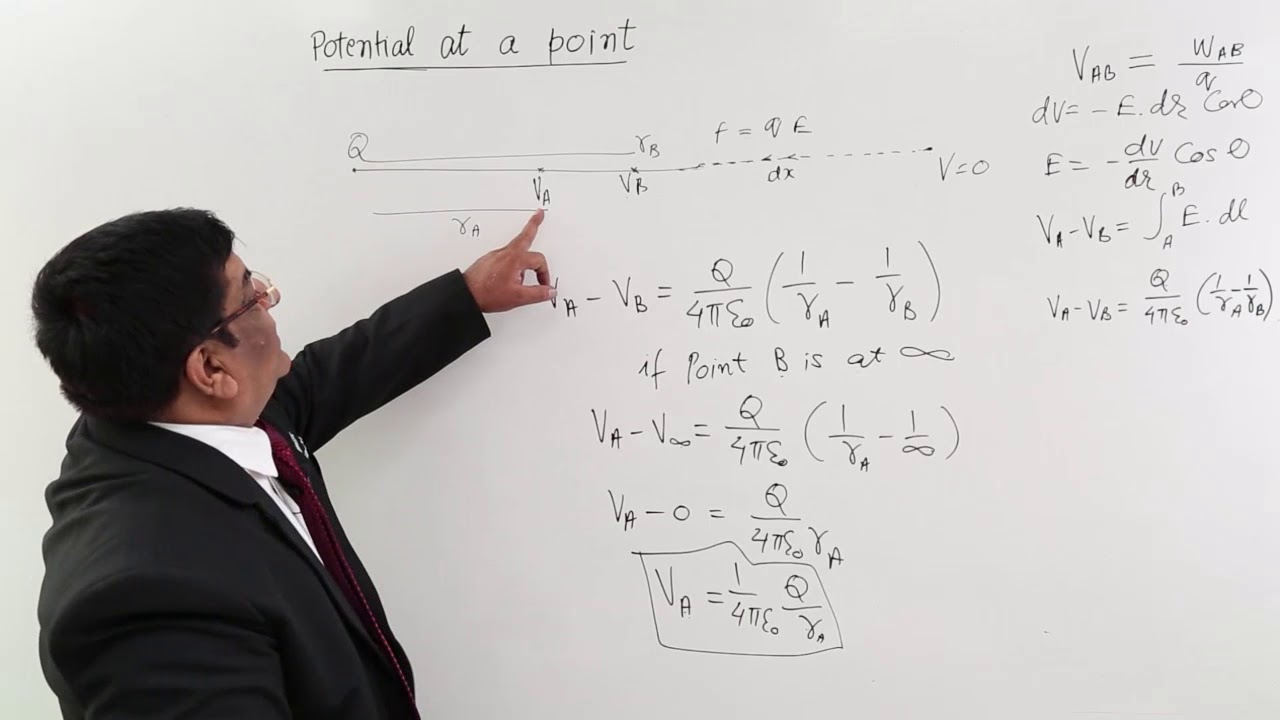 Potential at a point
Q
r_B
V_A
V_B
r_A
f = qE
dx
V=0
V_A - V_B = Q/4πε₀ (1/r_A - 1/r_B)
if Point B is at ∞
V_A - V_∞ = Q/4πε₀ (1/r_A - 1/∞)
V_A - 0 = Q/4πε₀ r_A
V_A = 1/4πε₀ Q/r_A
V_AB = W_AB/q
dV = - E. dr Cosθ
E = - dV/dr Cos θ
V_A - V_B = ∫_A^B E. dl
V_A - V_B = Q/4πε₀ (1/r_A - 1/r_B)